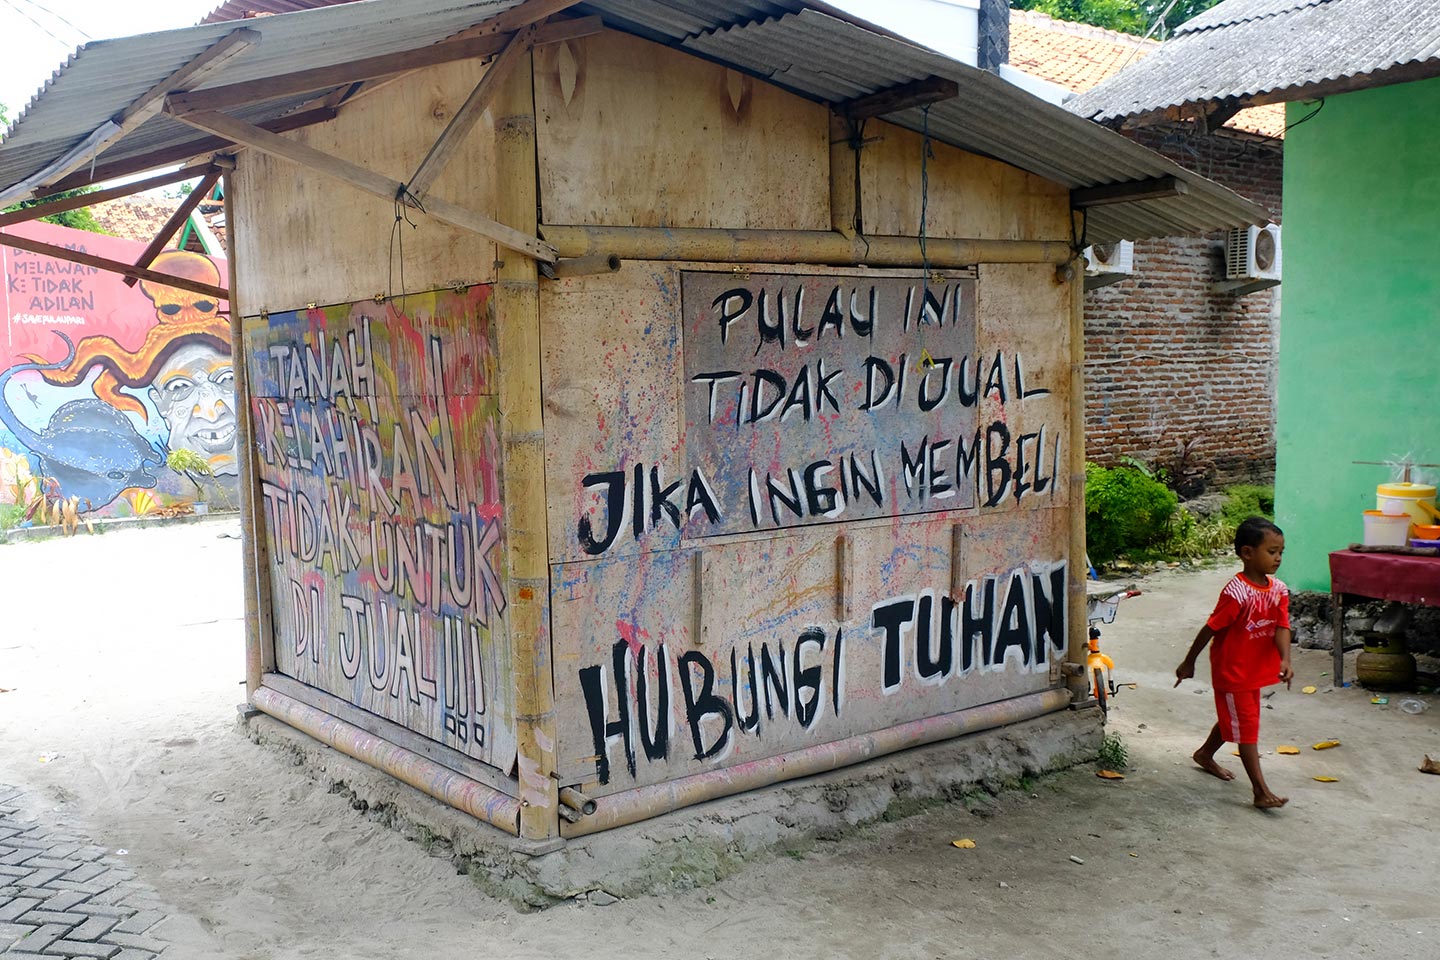 BERSAMA
MELAWAN
KETIDAK
ADILAN
#SAVEPULAUPARI
TANAH
KELAHIRAN
TIDAK UNTUK
DI JUAL!!!
PULAU INI
TIDAK DI JUAL
JIKA INGIN MEMBELI
HUBUNGI TUHAN